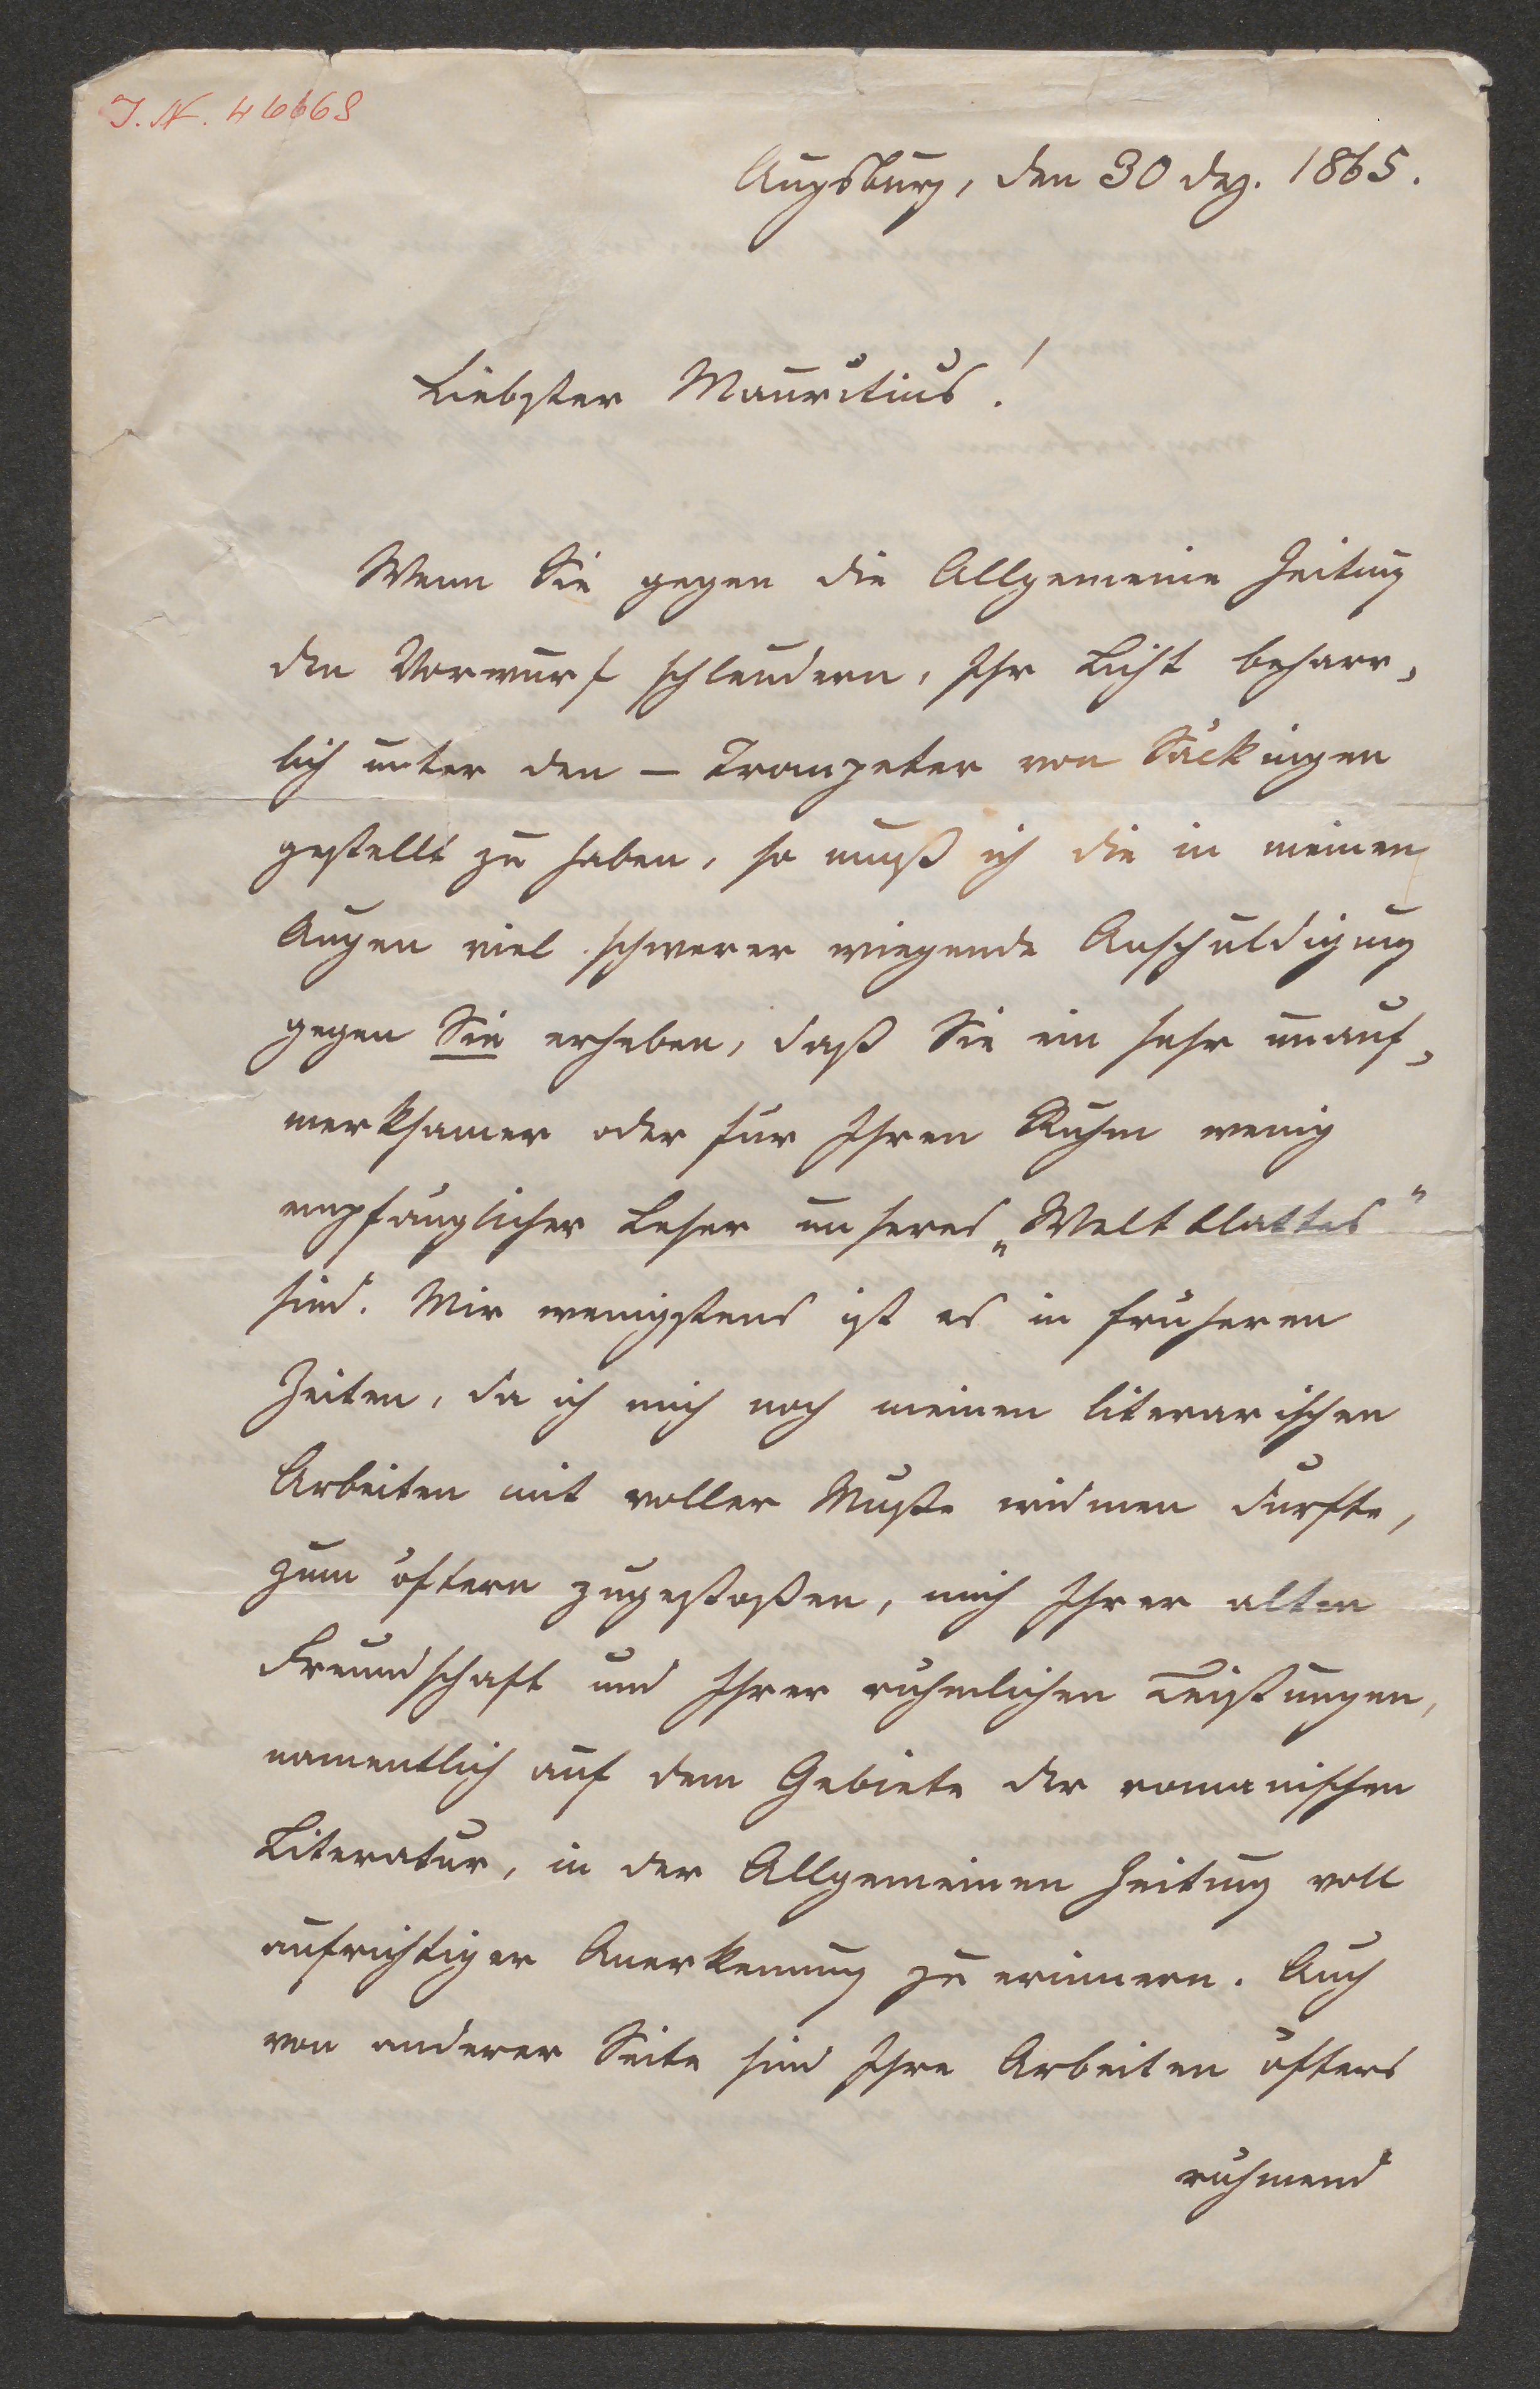 J. N. 46668
Augsburg, den 30 Dez. 1865.
Liebster Mauritius!
Wenn Sie gegen die Allgemeine Zeitung
den Vorwurf schleudern, Ihr Licht beharr-
lich unter den – Trompeter von Säckingen
gestellt zu haben, so muß ich die in meinen
Augen viel schwerer wiegende Anschuldigung
gegen Sie erheben, daß Sie ein sehr unauf-
merksamer oder für Ihren Ruhm wenig
empfänglicher Leser unseres „Weltblattes"
sind. Mir wenigstens ist es in früheren
Zeiten, da ich mich noch meinen literarischen
Arbeiten mit voller Muße widmen durfte,
zum öftern zugestoßen, mich Ihrer alten
Freundschaft und Ihrer rühmlichen Leistungen,
namentlich auf dem Gebiete der romanischen
Literatur, in der Allgemeinen Zeitung voll
aufrichtiger Anerkennung zu erinnern. Auch
von anderer Seite sind Ihre Arbeiten öfters
rühmend